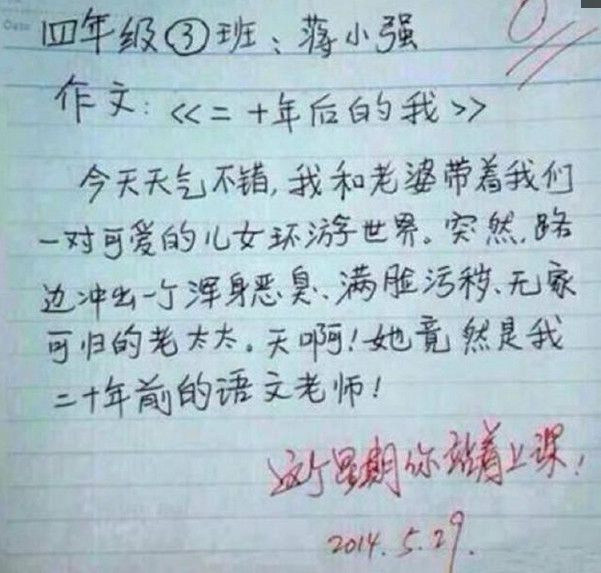 四年级③班：蒋小强
0
作文：<<二十年后的我>>
今天天气不错，我和老婆带着我们
一对可爱的儿女环游世界。突然，路
边冲出一个浑身恶臭、满脸污秽、无家
可归的老太太。天啊！她竟然是我
二十年前的语文老师！
这个星期你站着上课！
2014.5.29.